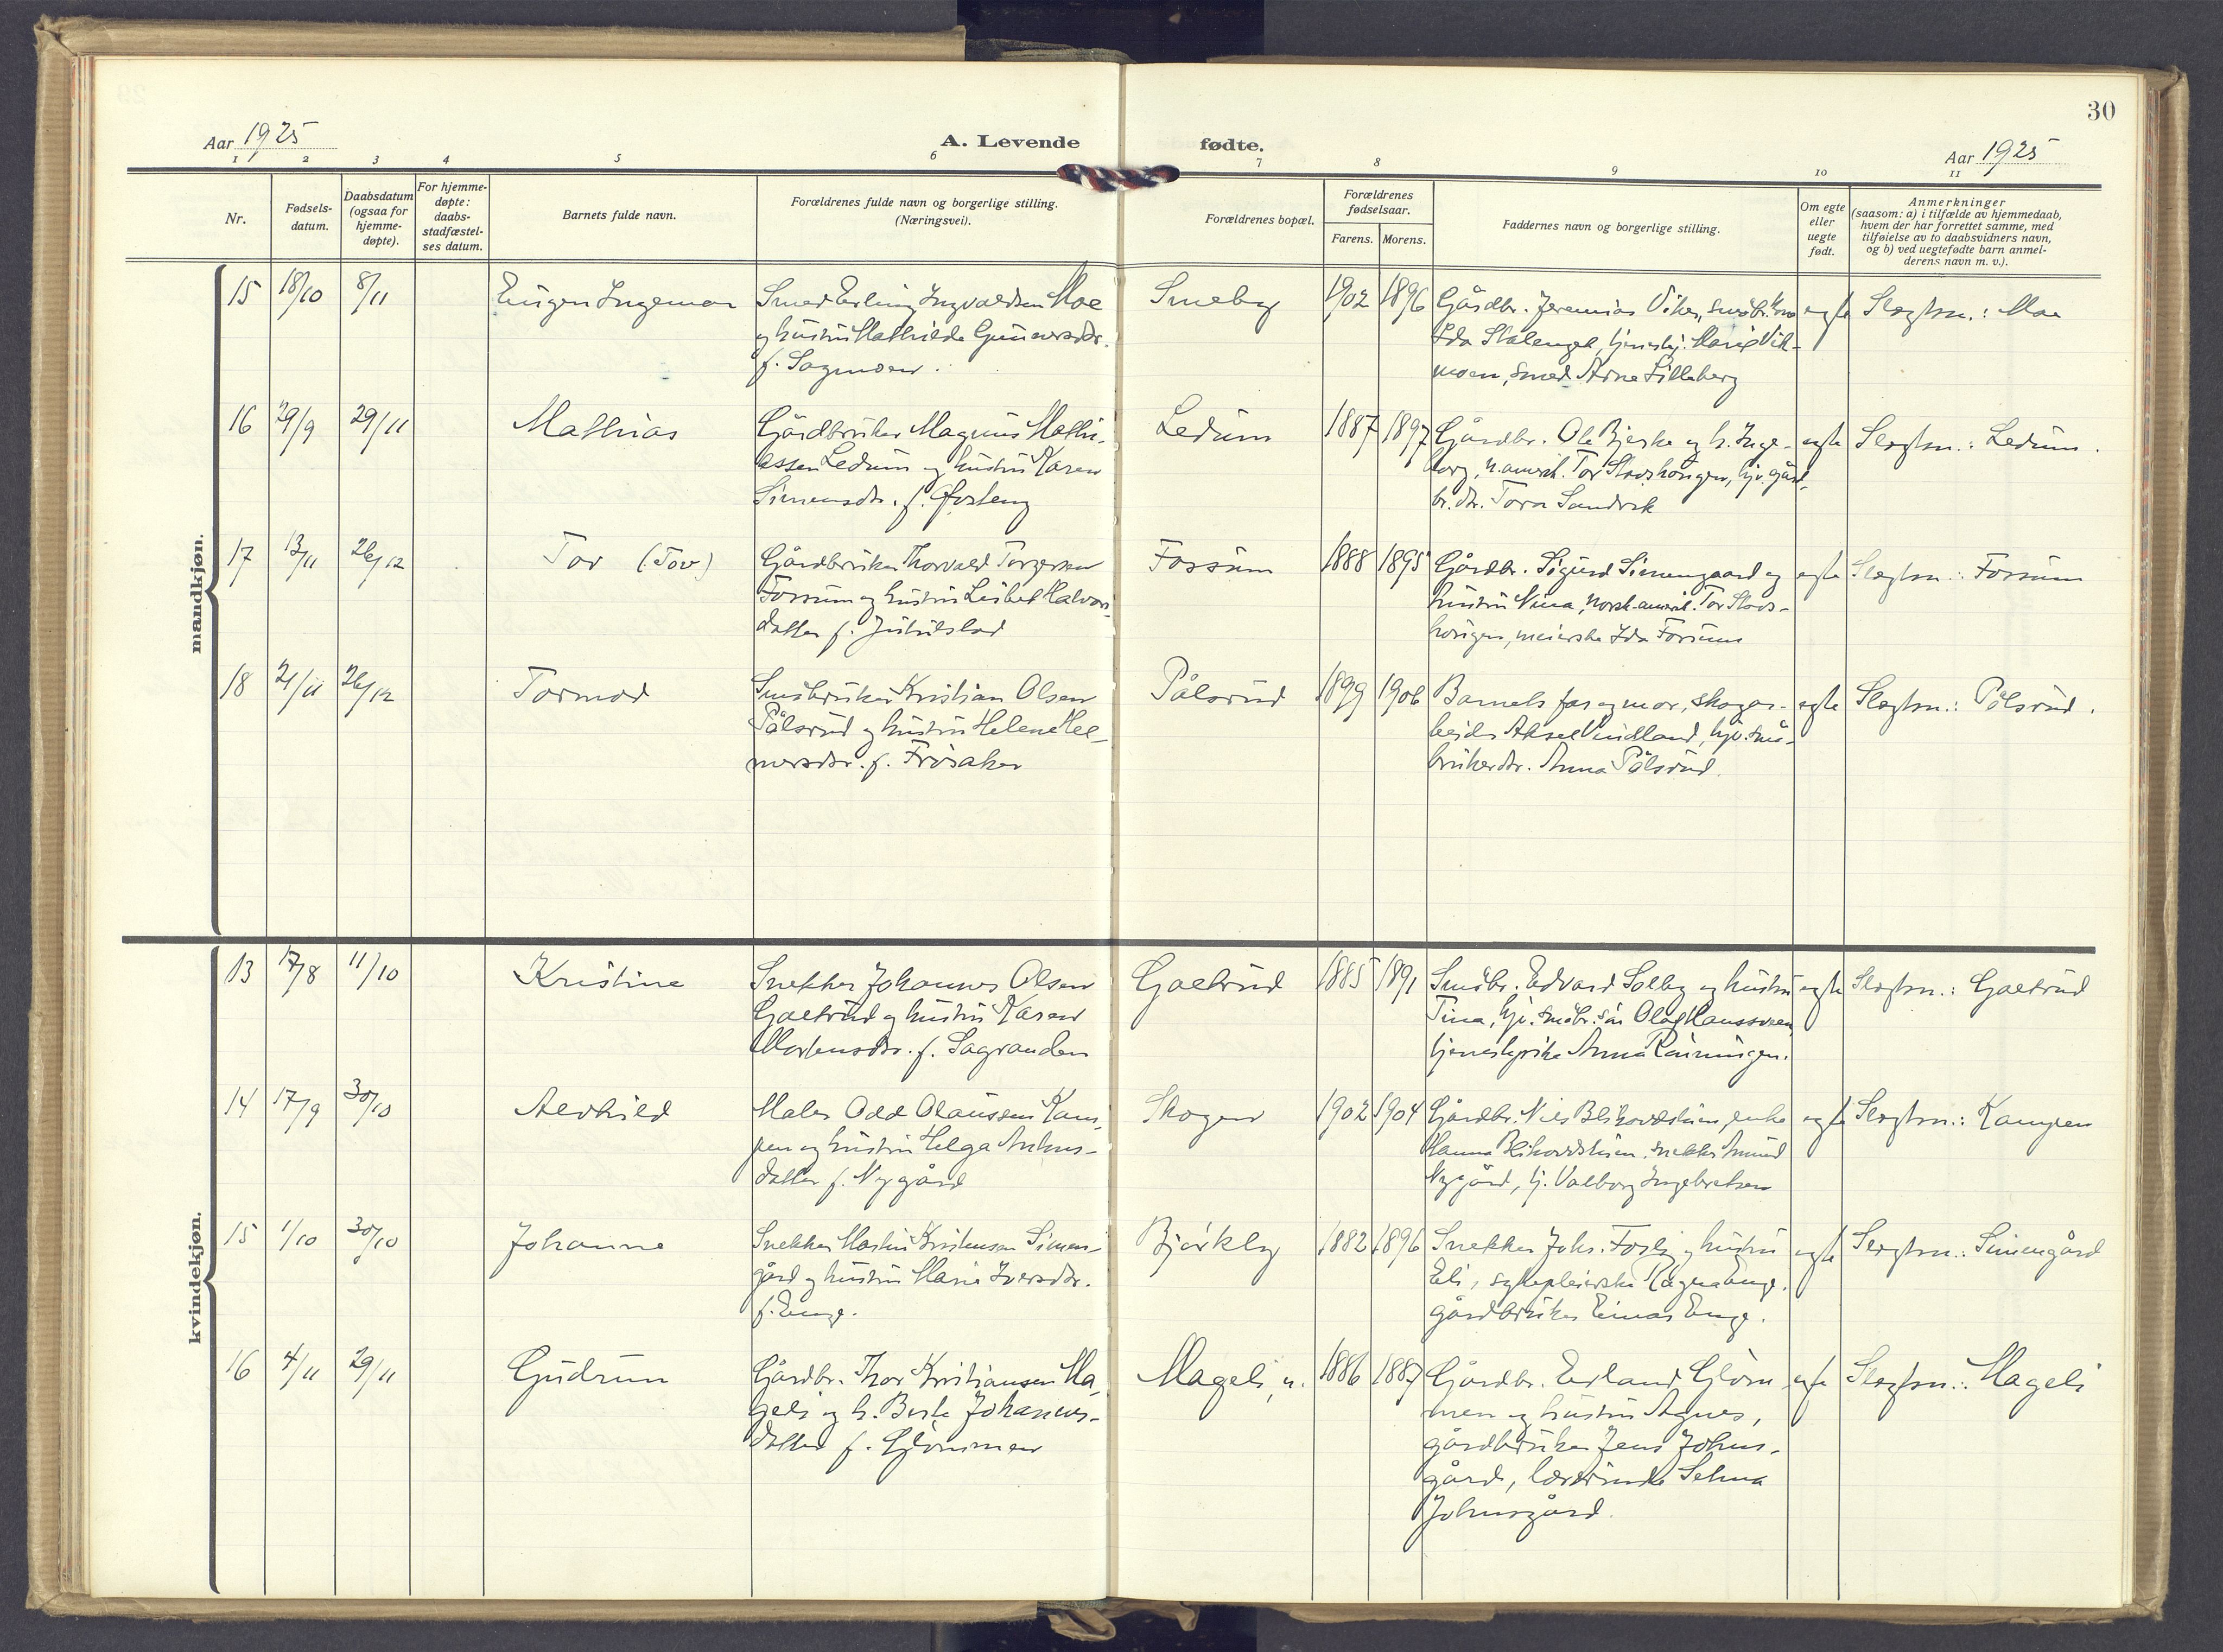 30
Aar 1925
A. Levende
fødte.
Aar 1925
1 2 3 4 5 6 7 8 9 10 11
Nr.
Fødsels-
datum.
Daabsdatum
(ogsaa for
hjemme-
døpte).
For hjemme-
døpte:
daabs-
stadfæstel-
ses datum.
Barnets fulde navn.
Forældrenes fulde navn og borgerlige stilling.
(Næringsvei).
Forældrenes bopæl.
Forældrenes
fødselsaar.
Farens. Morens.
Faddernes navn og borgerlige stilling.
Om egte
eller
uegte
født.
Anmerkninger
(saasom: a) i tilfælde av hjemmedaab,
hvem der har forrettet samme, med
tilføielse av to daabsvidners navn,
og b) ved uegtefødte barn anmel-
derens navn m. v.).
mandkjøn.
15 18/10 8/11 Eugen Ingemar
Smed Erling Ingvaldsen Moe
og hustru Mathilde Gunnersdtr.
f. Sagmoen.
Smeby 1902 1896
Gårdbr. Jeremias Viker, småbr.
Ida Skalengel, Marie Vik-
moen, smed Arne Lilleberg
egte Slegtsn.: Moe
16 29/9 29/11 Mathias
Gårdbruker Magnus Mathi-
assen Ledum og hustru Karen
Simensdtr. f. Østeng
Ledum 1887 1897
Gårdbr. Ole Bjerke og h. Inge-
borg, n.amerik. Tor Skogshorigen, hjv. gård-
br. dtr. Tora Sandvik
egte Slegtsn.: Ledum.
17 13/11 26/12 Tor (Tov)
Gårdbruker Thorvald Torgersen
Fossum og hustru Lisbet Halvors-
datter f. Julilstad
Fossum 1888 1895
Gårdbr. Sigurd Simengaard og
hustru Nina, norsk-amerik. Tor Skogs-
horigen, meierske Ida Fossum
egte Slegtsn.: Fossum
18 21/11 26/12 Tormod
Småbruker Kristian Olsen
Pålsrud og hustru Helene Hel-
mersdtr. f. Frøsaker
Pålsrud 1899 1906
Barnets far og mor, skogar-
beider Aksel Vindland, hjv. små-
brukerdtr. Anna Pålsrud.
egte Slegtsn.: Pålsrud.
kvindekjøn.
13 17/8 11/10 Kristine
Snekker Johannes Olsen
Galtrud og hustru Karen
Mortensdtr. f. Sagranden
Galtrud 1885 1891
Småbr. Edvard Solby og hustru
Tina, hjv. småbr. søn Olaf Haussveen,
tjenestepike Anna Rønningen.
egte Slegtsn.: Galtrud
14 17/9 30/10 Alvhild
Maler Odd Olaussen Kam-
pen og hustru Helga Anhus-
datter f. Nygård
Skogen 1902 1904
Gårdbr. Nils Blikovdshien, enke
Hanna Blikovdshien, snekker Amund
Nygård, tj. Valborg Ingebretsen
egte Slegtsn.: Kampen
15 1/10 30/10 Johanne
Snekker Martin Kristensen Simen-
gård og hustru Marie Iversdtr.
f. Enge.
Bjørkly 1882 1896
Snekker Johs. Fosli og hustru
Eli, sykepleierske Ragna Enge.
gårdbruker Einar Enge.
egte Slegtsn.: Simengård
16 4/11 29/11 Gudrun
Gårdbr. Thor Kristiansen Ma-
geli og h. Berte Johannes-
datter f. Glommen
Mageli, n. 1886 1887
Gårdbr. Erland Glom-
men og hustru Agnes,
gårdbruker Jens Johns-
gård, lærerinde Selma
Johnsgård.
egte Slegtsn.: Mageli